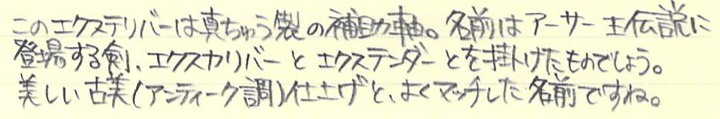 このエクステリバーは真ちゅう製の補助軸。名前はアーサー王伝説に
登場する剣、エクスカリバーとエクステンダーとを掛けたものでしょう。
美しい古美(アンティーク調)仕上げと、よくマッチした名前ですね。